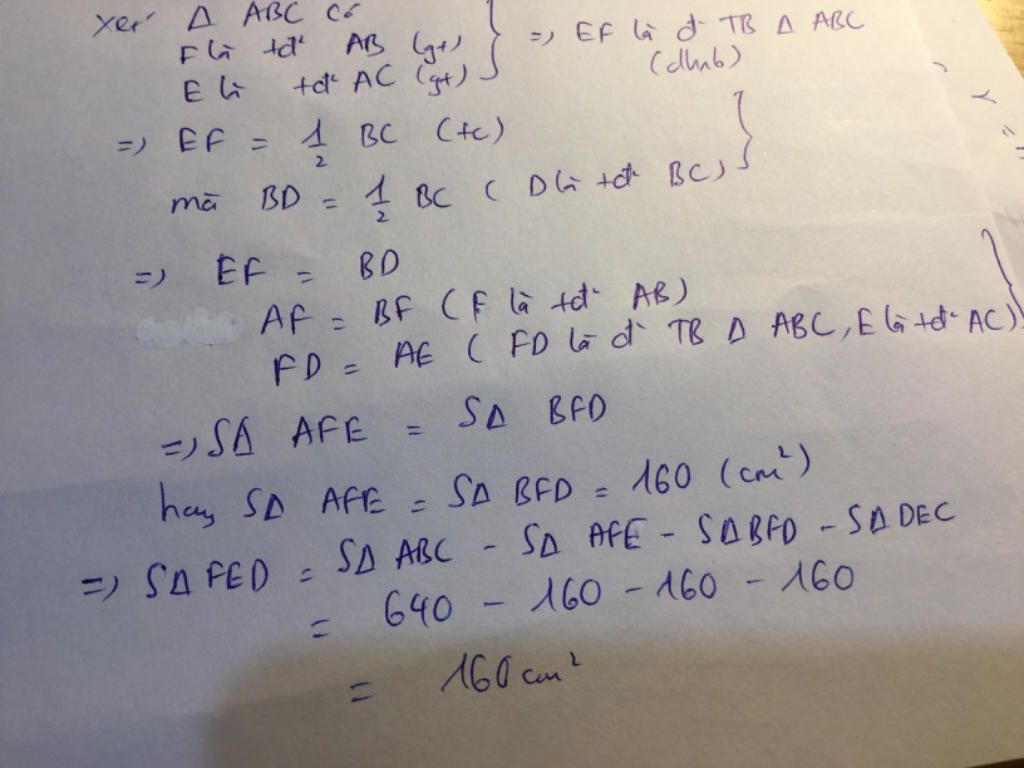 Xét Δ ABC có
F là tđ' AB (gt)
E là tđ' AC (gt) } => EF là đ' TB Δ ABC
(dhnb)
=> EF = 1/2 BC (tc)
mà BD = 1/2 BC ( D là tđ' BC) }
=> EF = BD
AF = BF (F là tđ' AB)
FD = AE ( FD là đ' TB Δ ABC, E là tđ' AC) }
=> SΔ AFE = SΔ BFD
hay SΔ AFE = SΔ BFD = 160 (cm²)
=> SΔ FED = SΔ ABC - SΔ AFE - SΔ BFD - SΔ DEC
= 640 - 160 - 160 - 160
= 160 cm²